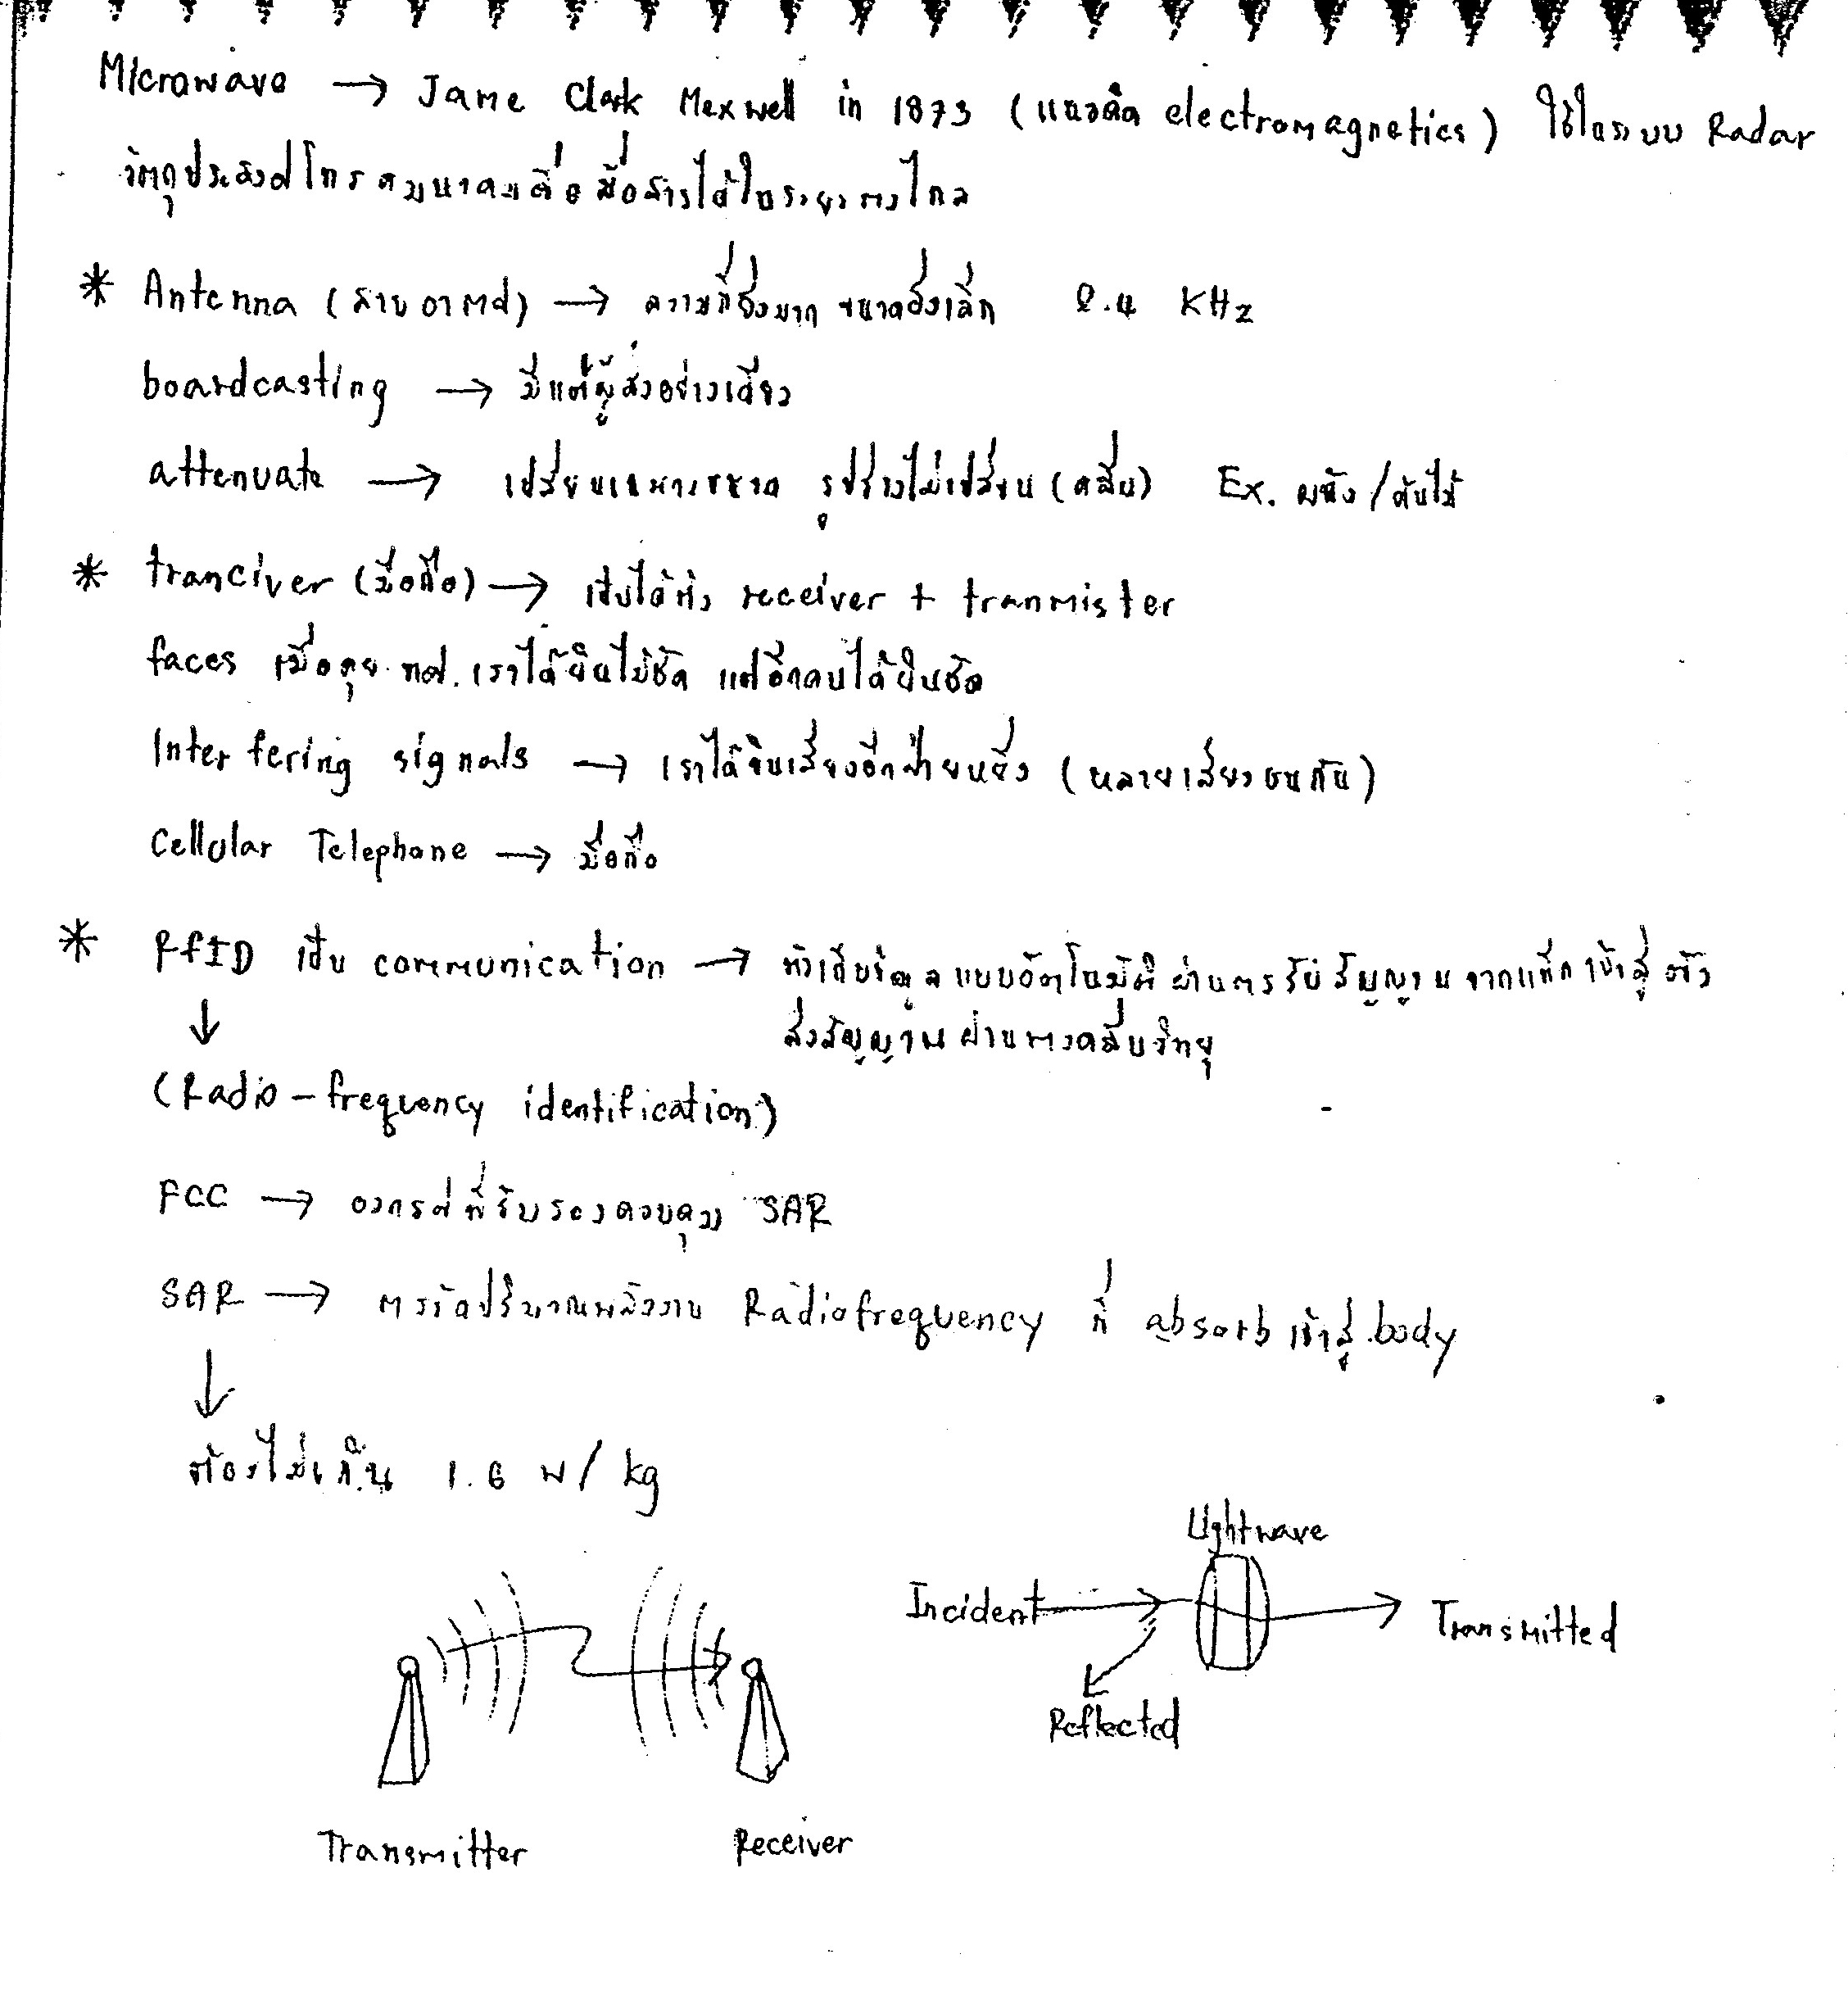 Microwave → Jame Clark Mexwell in 1873 (แนวคิด electromagnetics) ใช้ในระบบ Radar
วัตถุประสงค์โทรคมนาคมคือสื่อสารได้ในระยะทางไกล
* Antenna (สายอากาศ) → ความถี่ยิ่งมาก ขนาดยิ่งเล็ก 2.4 KHz
boardcasting → มีแต่ผู้ส่งอย่างเดียว
attenuate → เปลี่ยนเฉพาะขนาด รูปร่างไม่เปลี่ยน (คลื่น) Ex. ผนัง / ต้นไม้
* tranciver (มือถือ) → เป็นได้ทั้ง receiver + tranmister
faces เมื่อคุย ทศ. เราได้ยินไม่ชัด แต่อีกคนได้ยินชัด
Interfering signals → เราได้ยินเสียงอีกฝ่ายหนึ่ง (หลายเสียงชนกัน)
Cellular Telephone → มือถือ
* RfID เป็น communication → ตัวเก็บข้อมูลแบบอัตโนมัติ ผ่านการรับสัญญาน จากแท็ก เข้าสู่ ตัว
ส่งสัญญาน ผ่านทางคลื่นวิทยุ
↓
(Radio-frequency identification)
FCC → องกรค์ที่รับรองควบคุม SAR
SAR → การวัดปริมาณพลังงาน Radiofrequency ที่ absorb เข้าสู่ body
↓
ต้องไม่เกิน 1.6 W/kg
Lightwave
Incident
Transmitted
Reflected
Transmitter
Receiver